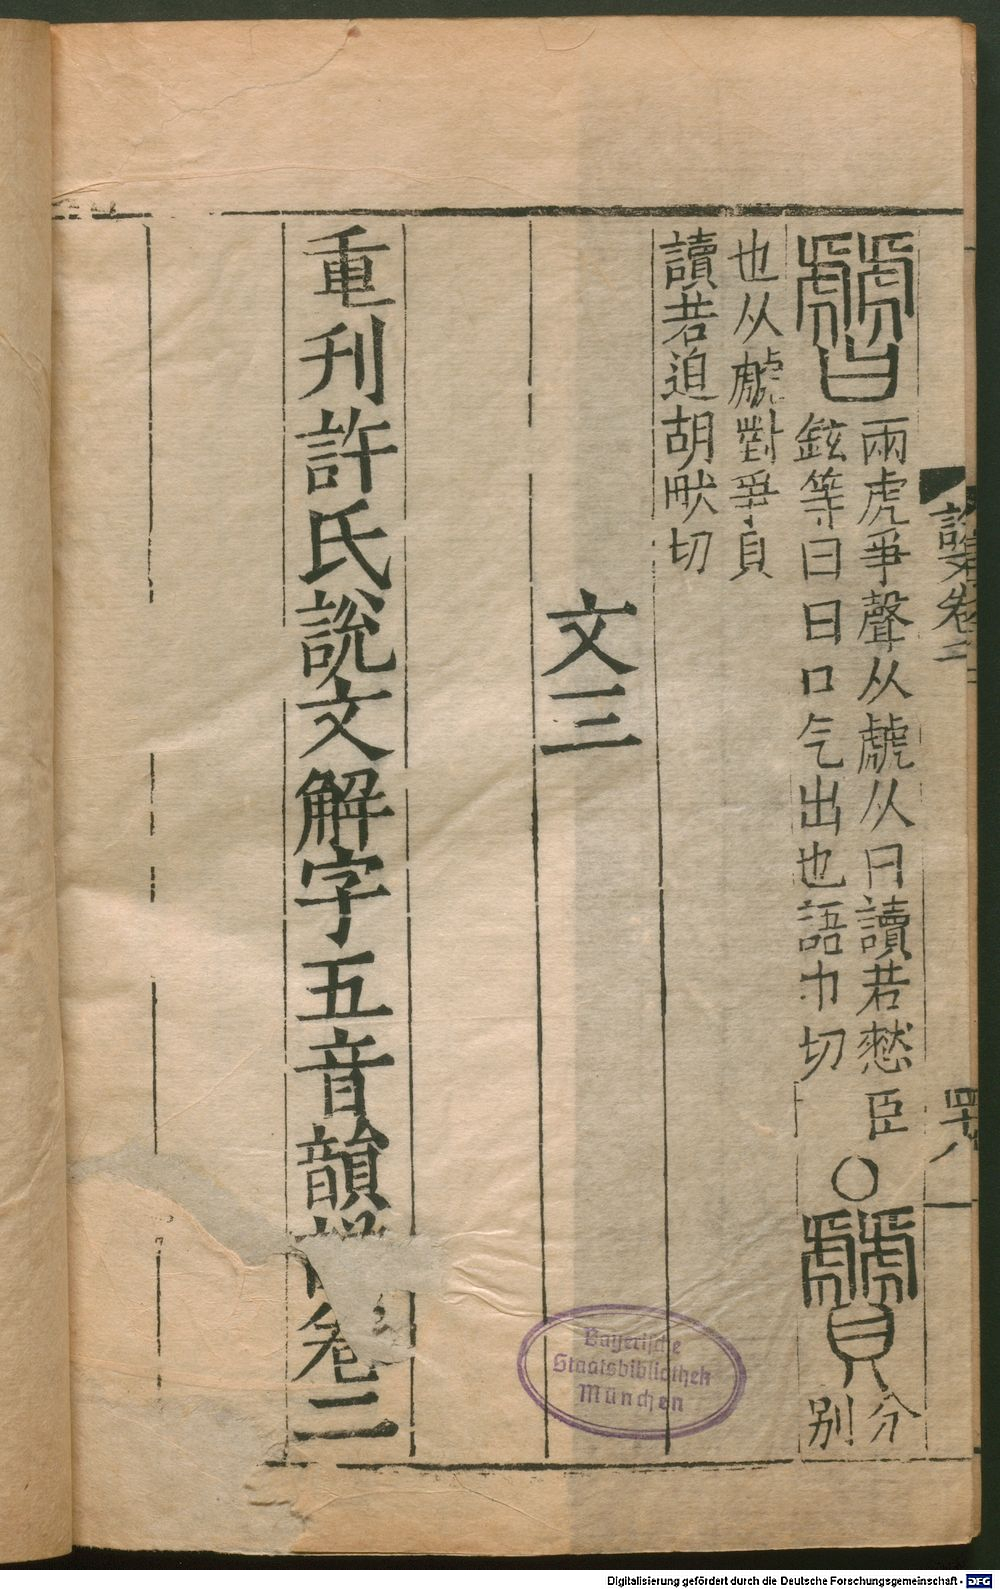 說文卷二
四十八
兩虎爭聲从虤从曰讀若憖臣
鉉等曰曰口气出也語巾切
○
分
別
也从虤對爭貝
讀若迴胡畎切
文三
重刊許氏說文解字五音韻譜卷二
Bayerische
Staatsbibliothek
München
Digitalisierung gefördert durch die Deutsche Forschungsgemeinschaft - DFG